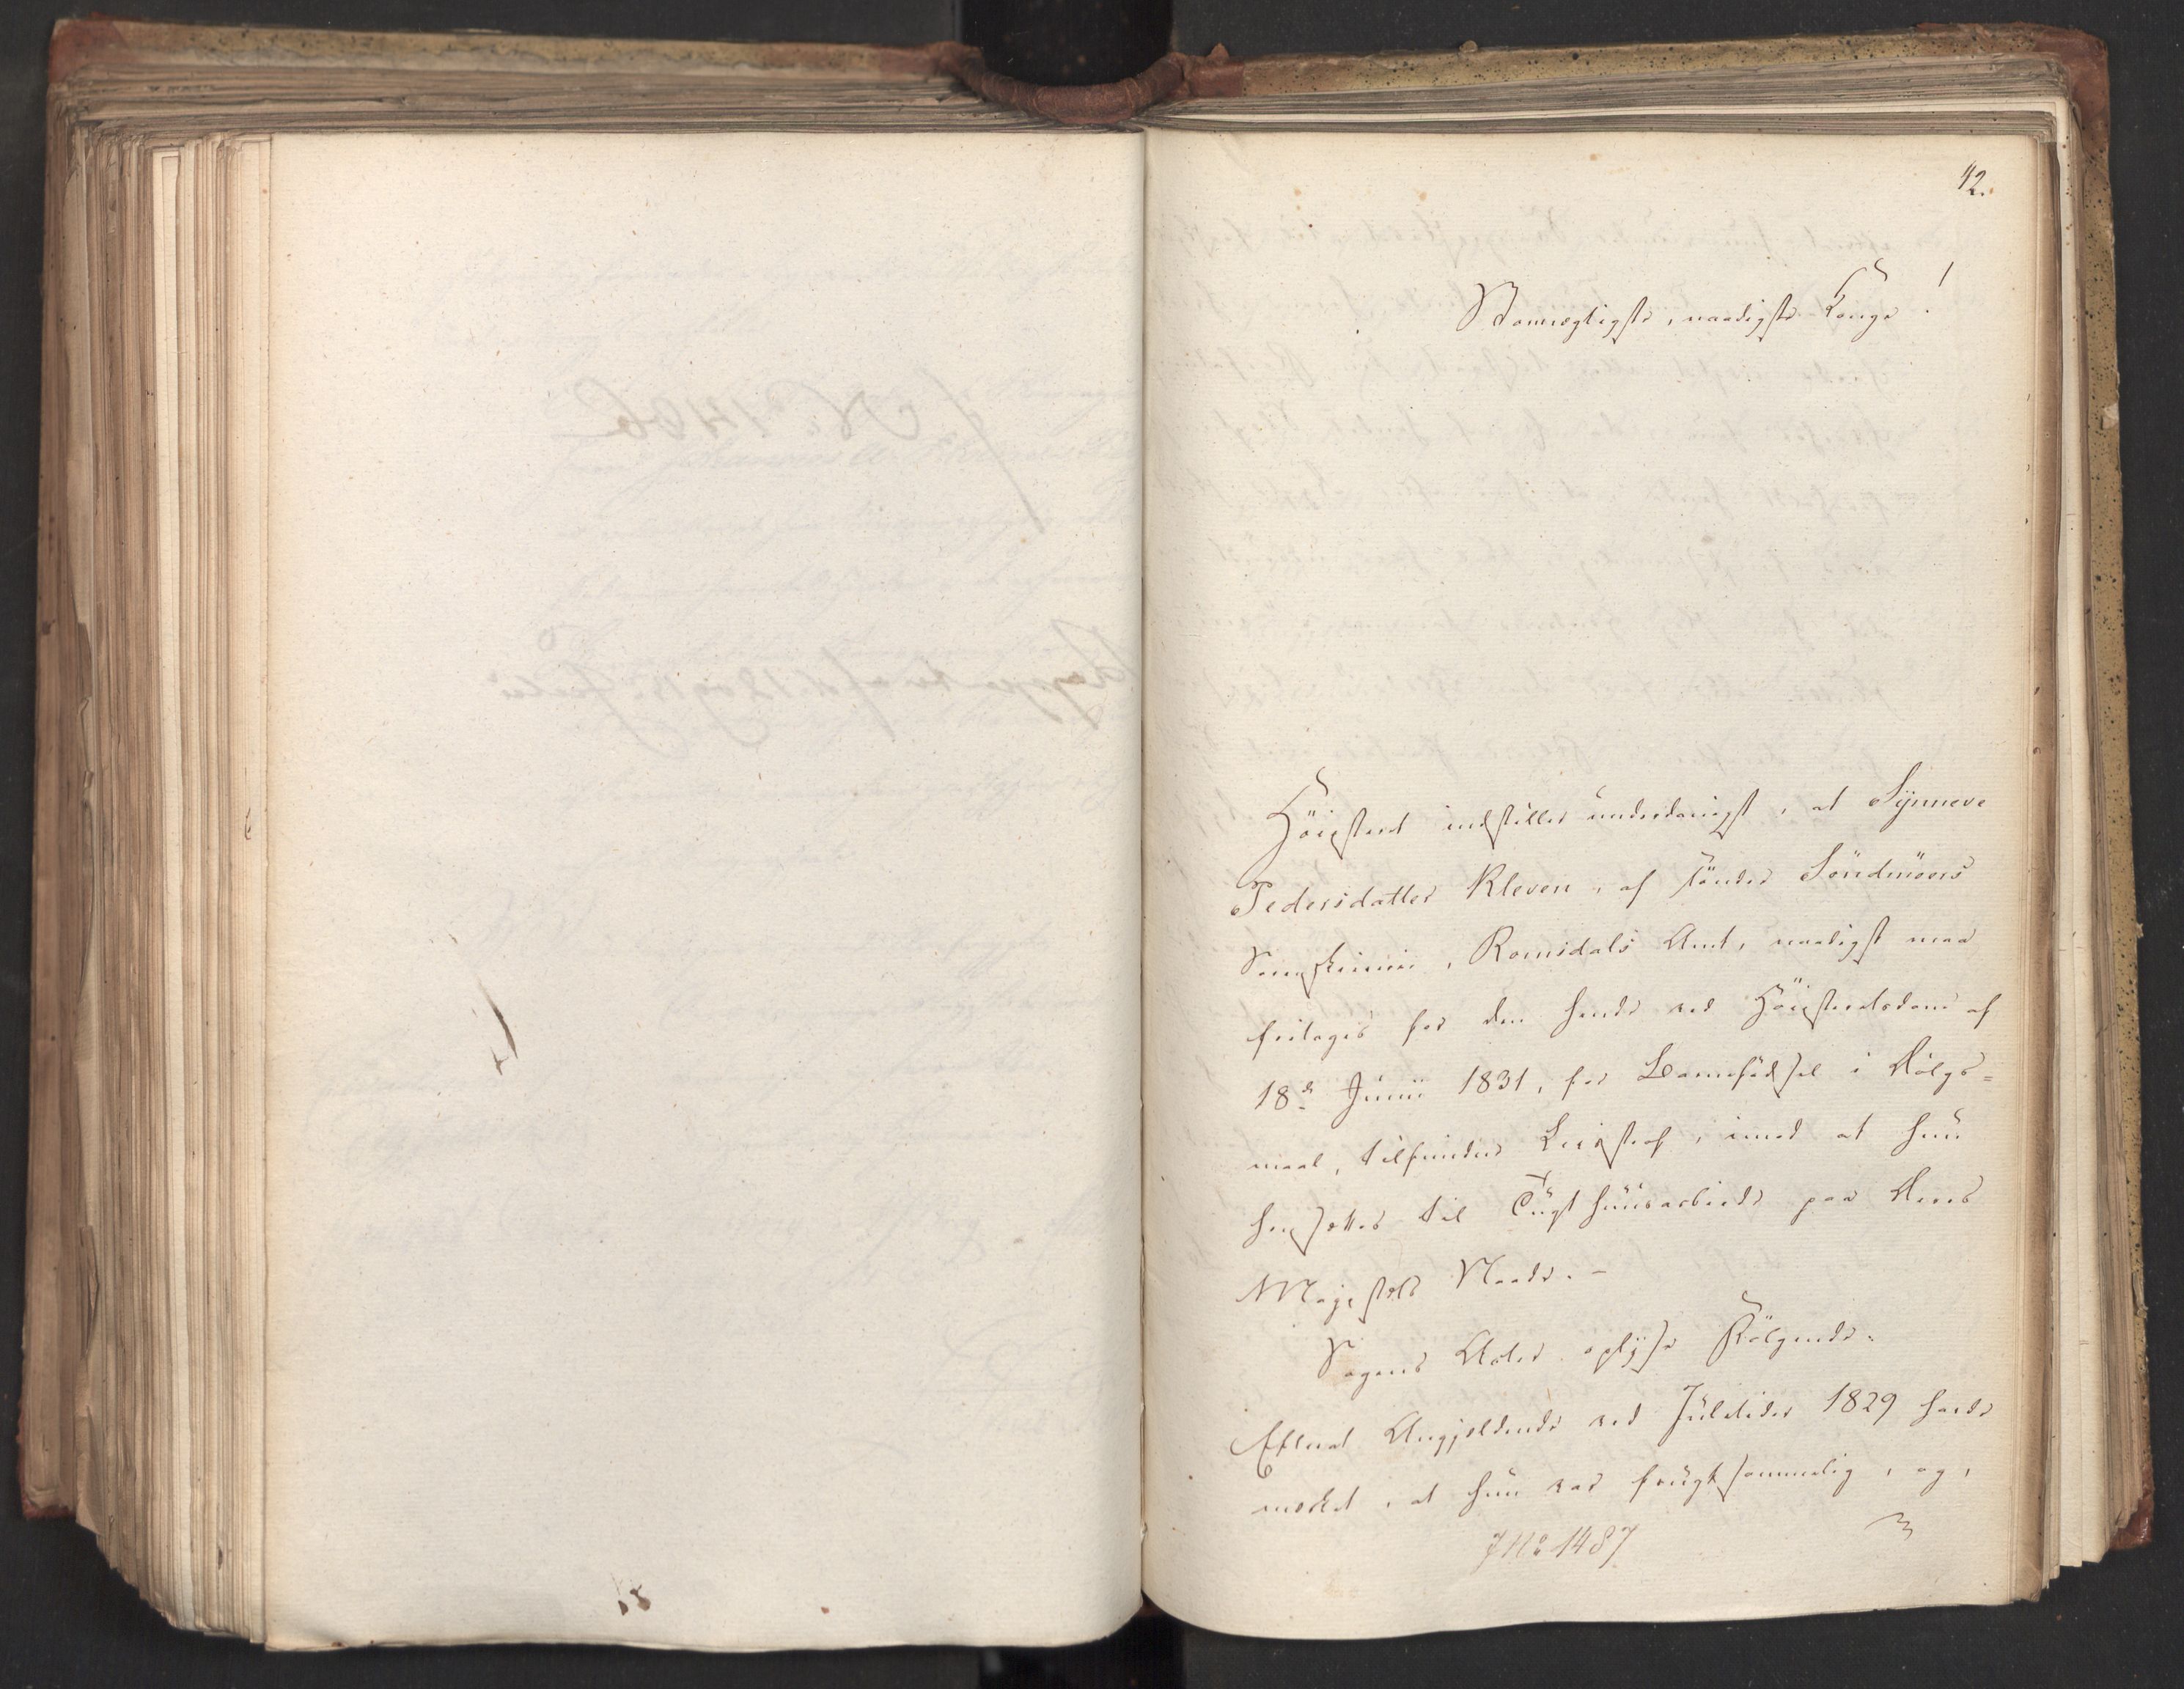 42.
Stormægtigste, naadigste Konge!
Höiesteret indstiller underdanigst, at Synneve
Pedersdatter Kleven, af søndre Søndmöers
Sorenskriverie, Romsdals Amt, naadigst maa
fritages for den hende ved Höiesteretsdom af
18de Junii 1831, for Barnefödsel i Dölgs=
maal, tilfundne Livsstraf, imod at hun
hensættes til Tugthuusarbeide paa Deres
Majestæts Naade. —
Sagens Acter oplyse Fölgende:
Efterat Angjeldende ved Juletider 1829 havde
mærket, at hun var frugtsommelig, og,
J No 1487